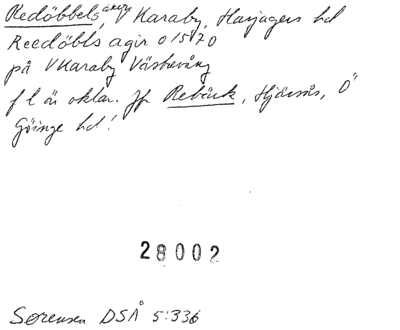 Redöbbels ager, V Karaby, Harjagers hd
Reedöbls agir o 1570
på V Karaby Västervång
f l är oklar. Jfr Rebäck, Hjärsås, Ö
Göinge hd!
28002
Sørensen DSÅ 5:336